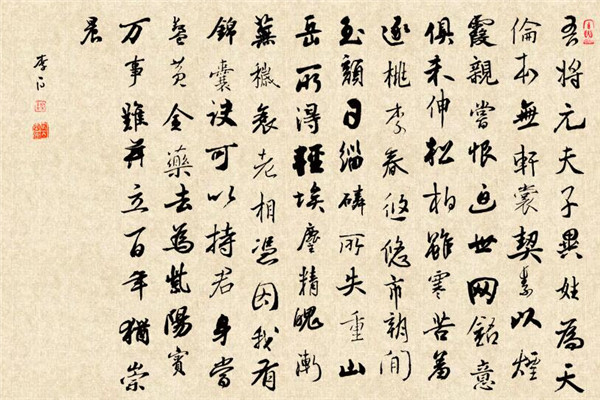 吾將元夫子異姓為天
倫本無軒裳契素以煙
霞親嘗恨迫世网銘意
俱未伸松柏雖寒苦羞
逐桃李春悠悠市朝間
玉顏日緇磷所失重山
岳所得輕埃塵精魄漸
蕪穢衰老相憑因我有
錦囊訣可以持君身當
餐黃金藥去為紫陽賓
万事難並立百年猶崇
晨
李白